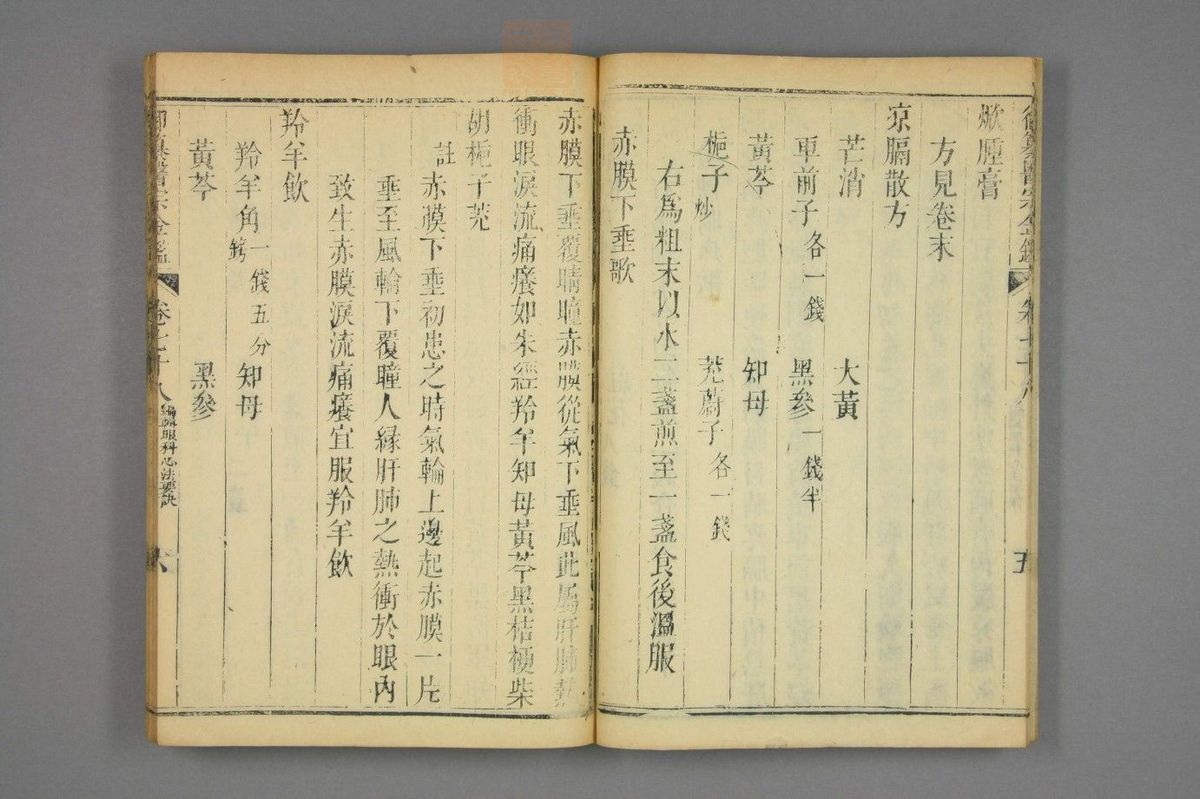 御纂醫宗金鑑 卷七十八 五
㷀腫膏
方見卷末
涼膈散方
芒消 大黃
車前子各一錢 黑參一錢半
黃芩 知母
梔子炒 茺蔚子各一錢
右爲粗末以水二盞煎至一盞食後溫服
赤膜下垂歌
赤膜下垂覆睛瞳赤膜從氣下垂風此屬肝肺熱
衝眼淚流痛癢如朱經羚羊知母黃芩黑桔梗柴
胡梔子茺
註赤膜下垂初患之時氣輪上邊起赤膜一片
垂至風輪下覆瞳人緣肝肺之熱衝於眼內
致生赤膜淚流痛癢宜服羚羊飲
羚羊飲
羚羊角鎊一錢五分 知母
黃芩 黑參
御纂醫宗金鑑 卷七十八 編輯眼科心法要訣 六